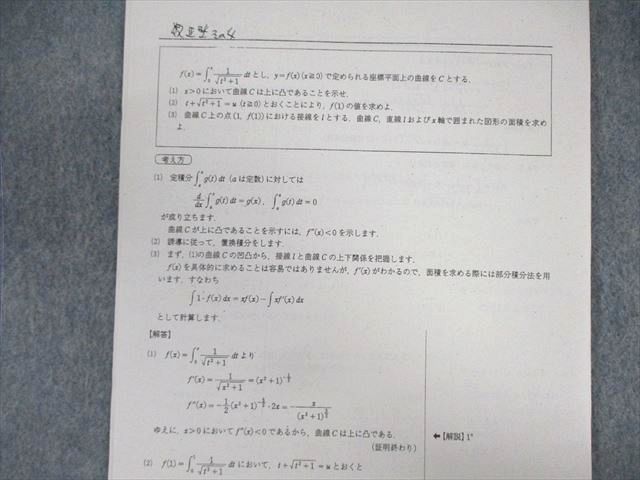 f(x)=∫₀ˣ 1/√(t²+1) dt とし，y=f(x)(x≧0)で定められる座標平面上の曲線をCとする．
(1) x>0において曲線Cは上に凸であることを示せ．
(2) t+√(t²+1)=u (t≧0)とおくことにより，f(1)の値を求めよ．
(3) 曲線C上の点(1, f(1))における接線をlとする．曲線C，直線lおよびx軸で囲まれた図形の面積を求め
よ．
考え方
(1) 定積分∫ₐˣ g(t)dt (aは定数)に対しては
d/dx ∫ₐˣ g(t)dt=g(x)，∫ₐᵃ g(t)dt=0
が成り立ちます．
曲線Cが上に凸であることを示すには，f″(x)<0を示します．
(2) 誘導に従って，置換積分をします．
(3) まず，(1)の曲線Cの凹凸から，接線lと曲線Cの上下関係を把握します．
f(x)を具体的に求めることは容易ではありませんが，f′(x)がわかるので，面積を求める際には部分積分法を用
います．すなわち
∫1·f(x)dx=xf(x)−∫xf′(x)dx
として計算します．
【解答】
(1) f(x)=∫₀ˣ 1/√(t²+1) dt より
f′(x)=1/√(x²+1)=(x²+1)^(-1/2)
f″(x)=−1/2(x²+1)^(-3/2)·2x=−x/(x²+1)^(3/2)
ゆえに，x>0においてf″(x)<0であるから，曲線Cは上に凸である．
(証明終わり)
←【解説】1°
(2) f(1)=∫₀¹ 1/√(t²+1) dt において，t+√(t²+1)=uとおくと